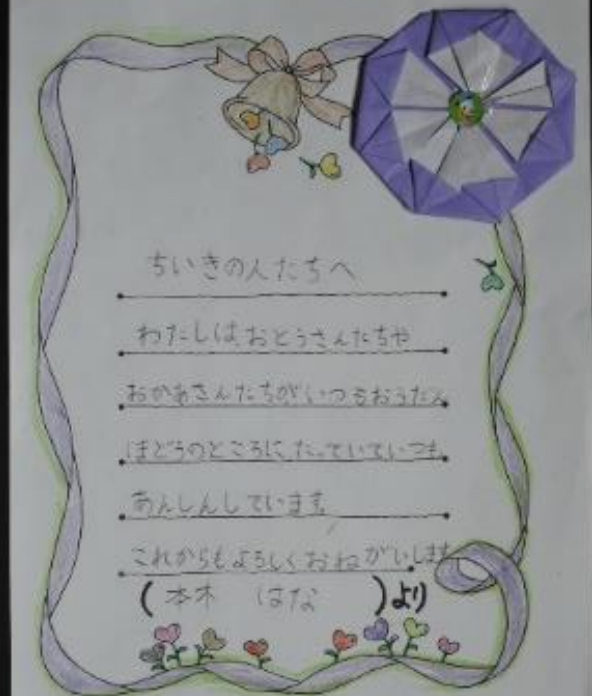 ちいきの人たちへ
わたしは、おとうさんたちや
おかあさんたちがいつもおうだん
ほどうのところに、たっていていつも
あんしんしています。
これからもよろしくおねがいします
(本木 はな)より